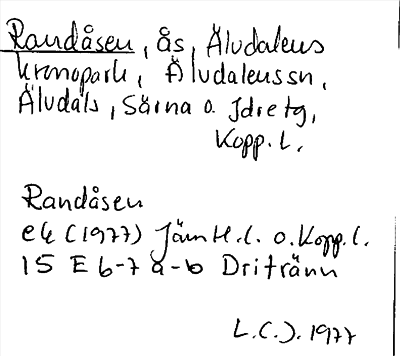 Randåsen, ås, Älvdalens
kronopark, Älvdalens sn,
Älvdals, Särna o. Idre tg,
Kopp. l.
Randåsen
ek (1977) Jämtl. l. o. Kopp. l.
15 E 6-7 a-b Dritränn
L.C.J. 1977